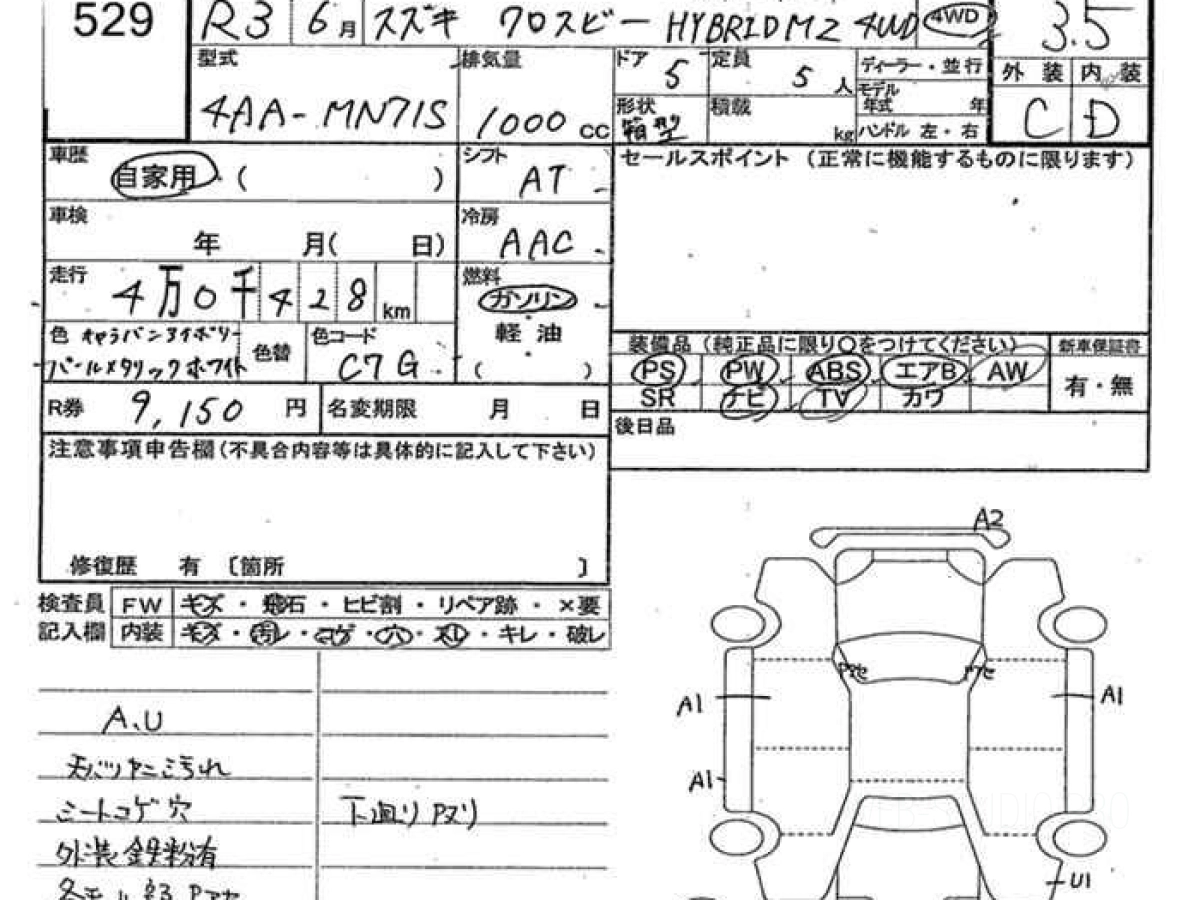 529
R3 6月 スズキ クロスビー HYBRID MZ 4WD 4WD 3.5
型式 4AA-MN71S
排気量 1000 cc
ドア 5 定員 5 人
形状 箱型 積載 kg
ディーラー・並行
モデル年式 年
ハンドル 左・右
外装 内装
C D
車歴 自家用・( )
シフト AT
セールスポイント (正常に機能するものに限ります)
車検 年 月( 日)
冷房 AAC
走行 4万0千428 km
燃料 ガソリン
軽油
( )
色 キャラバンアイボリー
パールメタリックホワイト
色替
色コード C7G
装備品 (純正品に限り○をつけてください)
新車保証書
PS PW ABS エアB AW
有・無
SR ナビ TV カワ
R券 9,150 円 名変期限 月 日
後日品
注意事項申告欄(不具合内容等は具体的に記入して下さい)
修復歴 有 〔箇所 〕
検査員 FW キズ・飛石・ヒビ割・リペア跡・×要
記入欄 内装 キズ・汚レ・コゲ・穴・スレ・キレ・破レ
A2
A1 A1
A1
U1
A、U
天バリヤニ汚れ
シートコゲ穴
下廻りPヌリ
外装鉄粉有